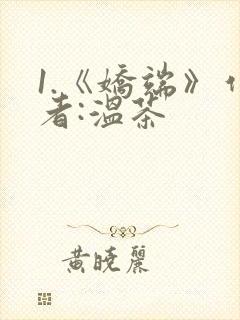 1.《嬌端》
者:溫茶
黃曉麗